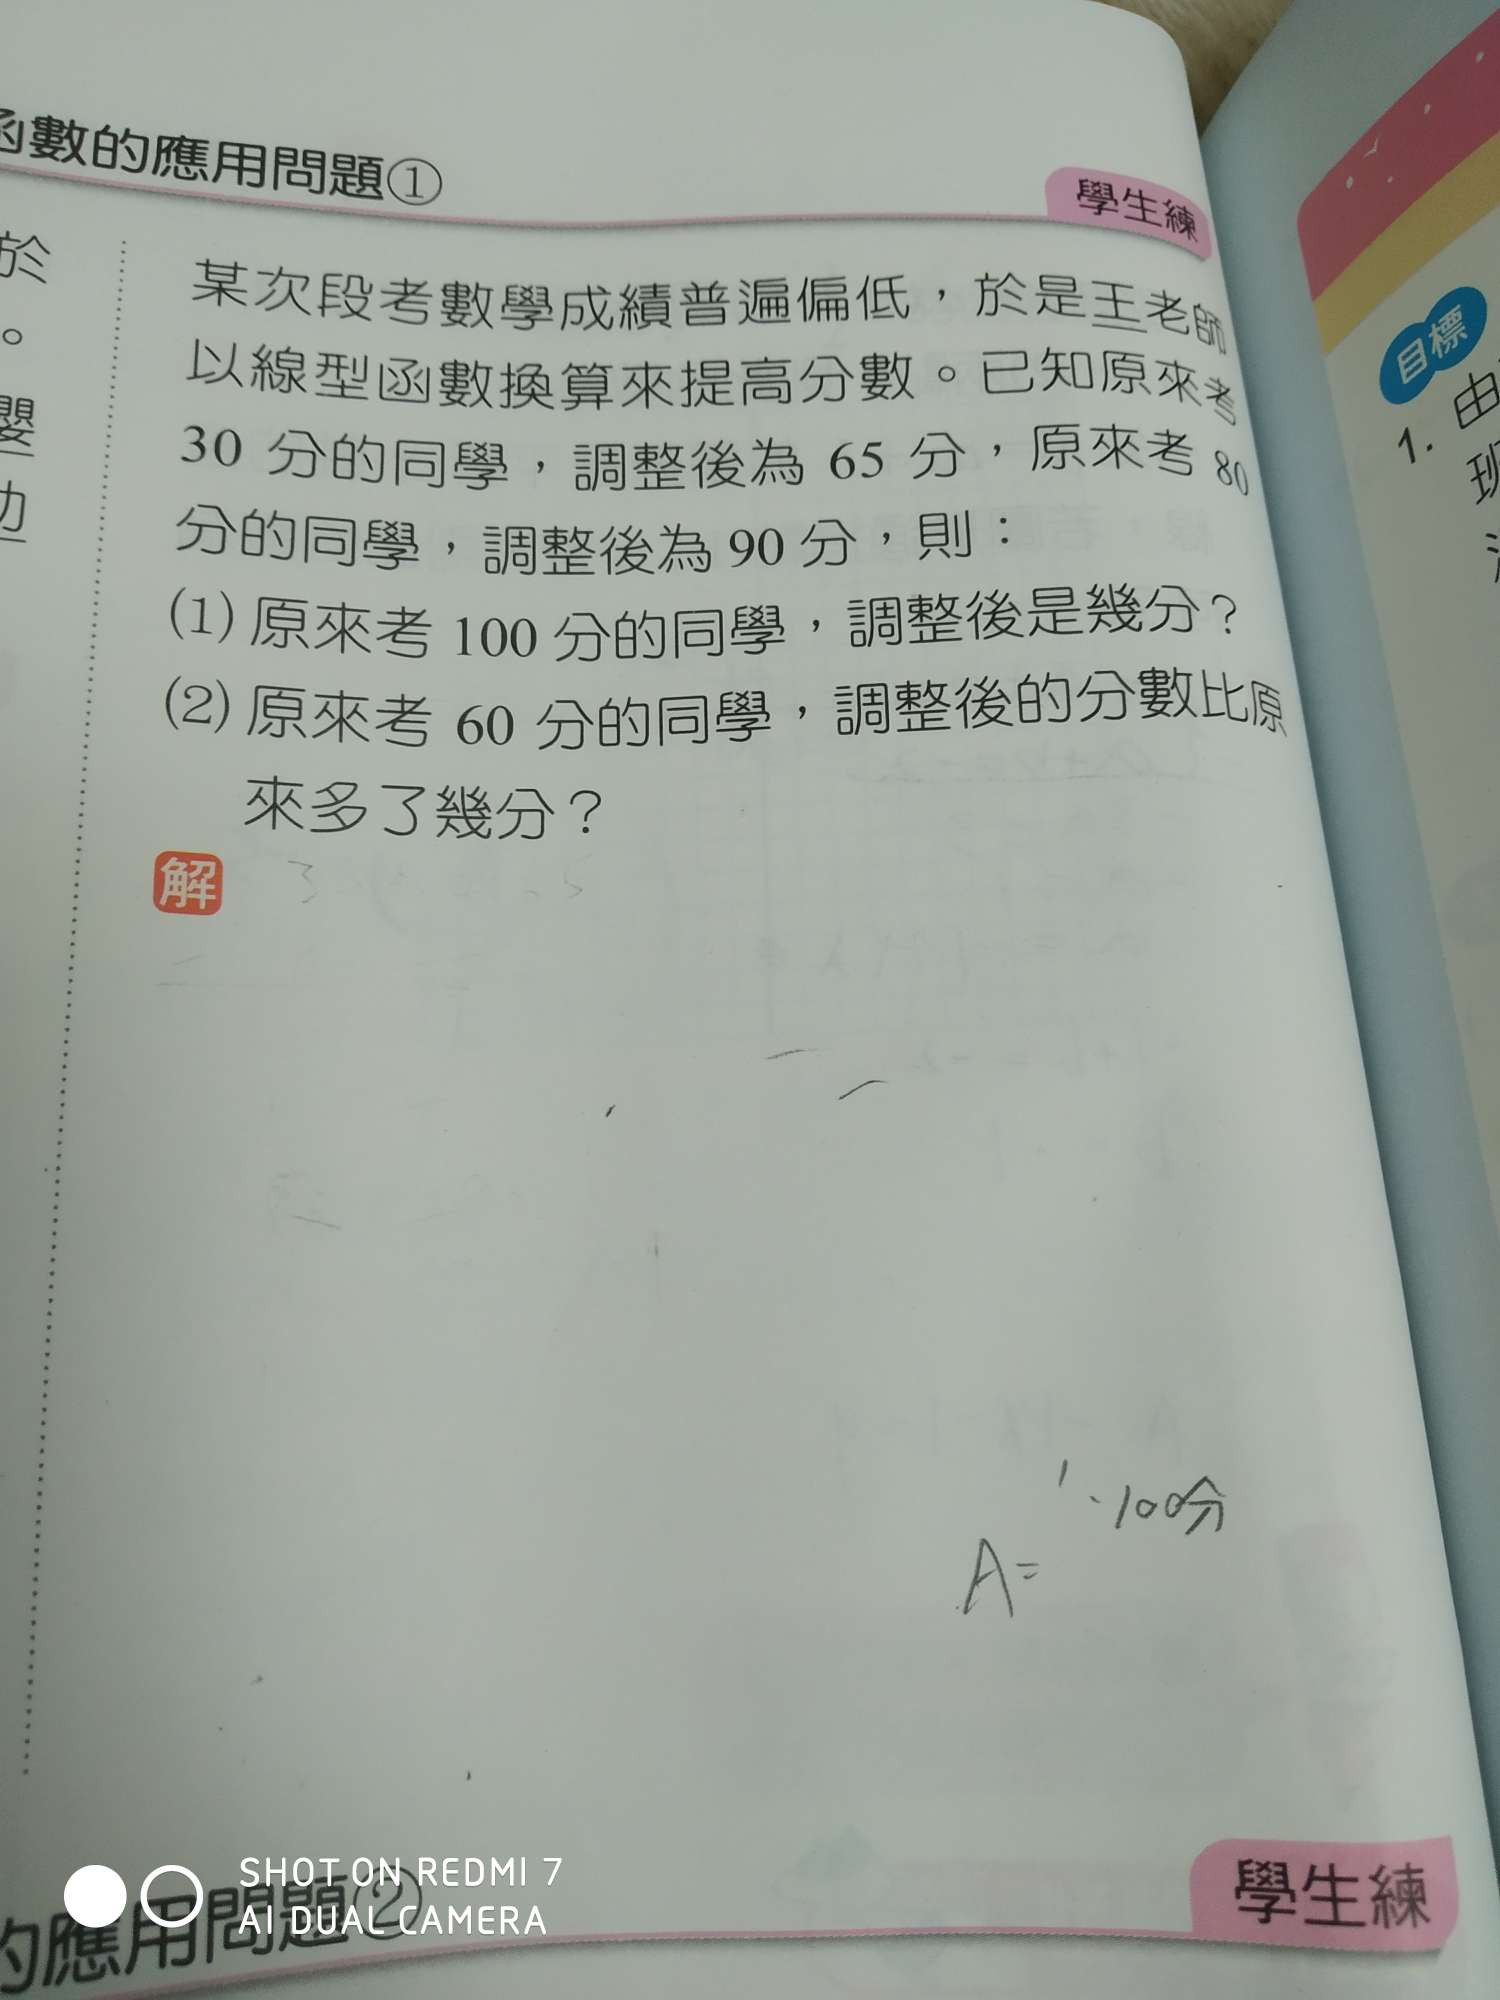 函數的應用問題①
學生練
於
。
某次段考數學成績普遍偏低，於是王老師
以線型函數換算來提高分數。已知原來考
30 分的同學，調整後為 65 分，原來考 80
分的同學，調整後為 90 分，則：
(1) 原來考 100 分的同學，調整後是幾分？
(2) 原來考 60 分的同學，調整後的分數比原
來多了幾分？
解
100分
A=
目標
1. 由
班
的應用問題②
學生練
SHOT ON REDMI 7
AI DUAL CAMERA